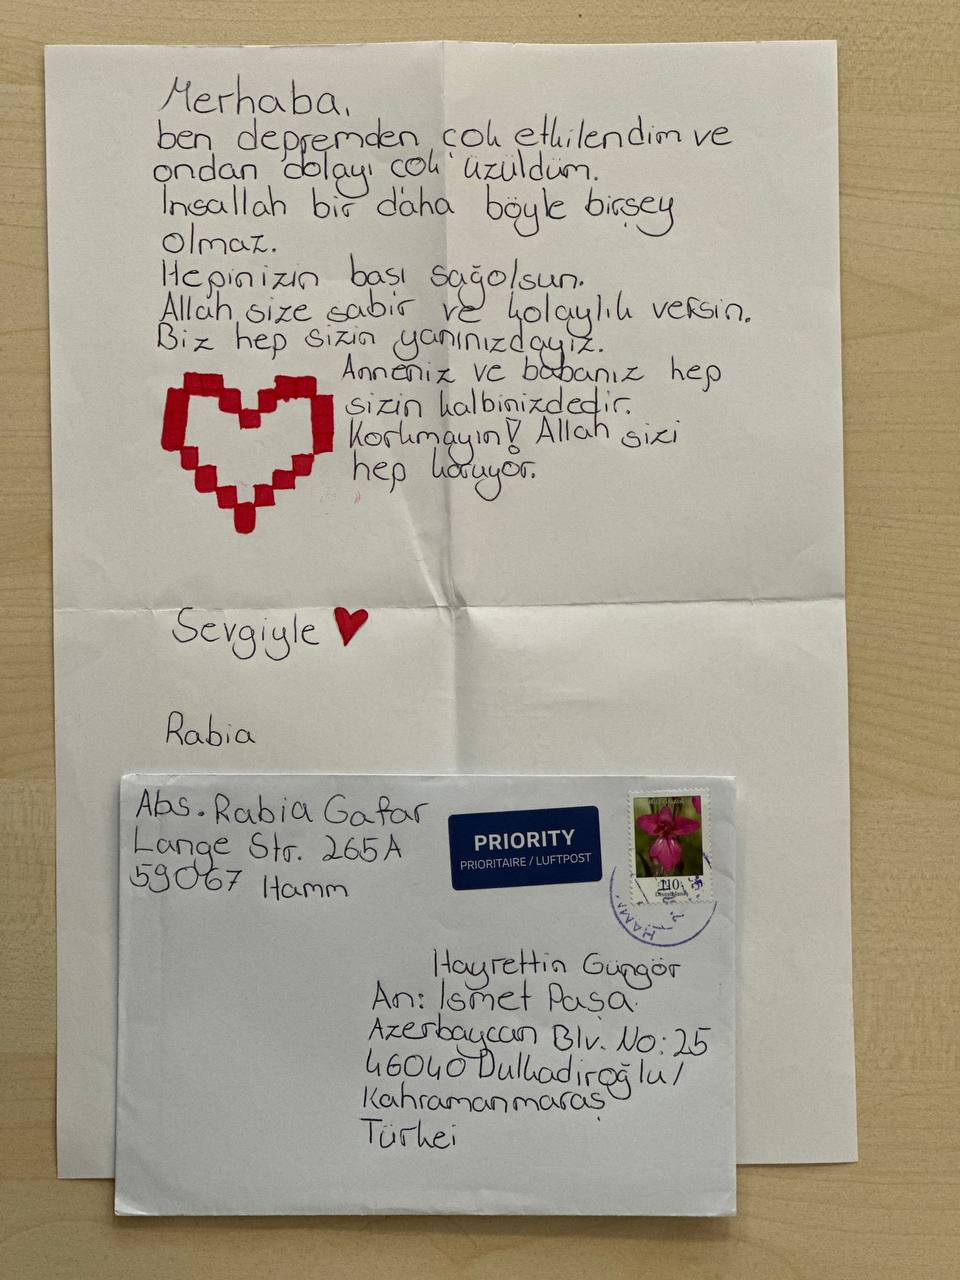 Merhaba,
ben depremden çok etkilendim ve
ondan dolayı çok üzüldüm.
Insallah bir daha böyle birşey
olmaz.
Hepinizin bası sağolsun.
Allah size sabir ve kolaylık versin.
Biz hep sizin yanınızdayız.
Anneniz ve babanız hep
sizin kalbinizdedir.
Korkmayın! Allah sizi
hep koruyor.
Sevgiyle
Rabia
Abs. Rabia Gafar
Lange Str. 265A
59067 Hamm
PRIORITY
PRIORITAIRE / LUFTPOST
110
Hayrettin Güngör
An: Ismet Paşa
Azerbaycan Blv. No: 25
46040 Dulkadiroğlu/
Kahramanmaraş
Türkei